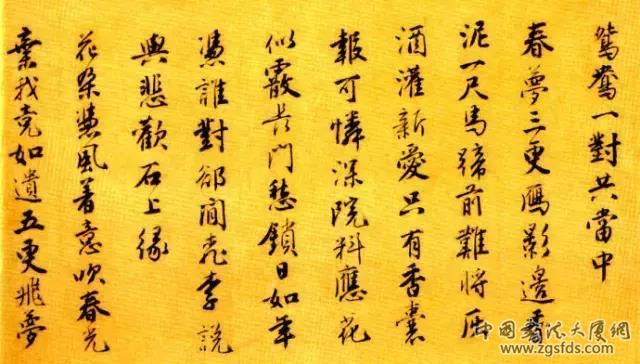 鴛鴦一對共當中
春夢三更雁影邊香
泥一尺馬蹄前難將灰
酒灌新愛只有香囊
報可憐深院料應花
似霰長門愁鎖日如年
憑誰對卻閒桃李說
與悲歡石上緣
花朵憑風着意吹春光
棄我竟如遺五更飛夢
中國書法大厦網
www.zgsfds.com